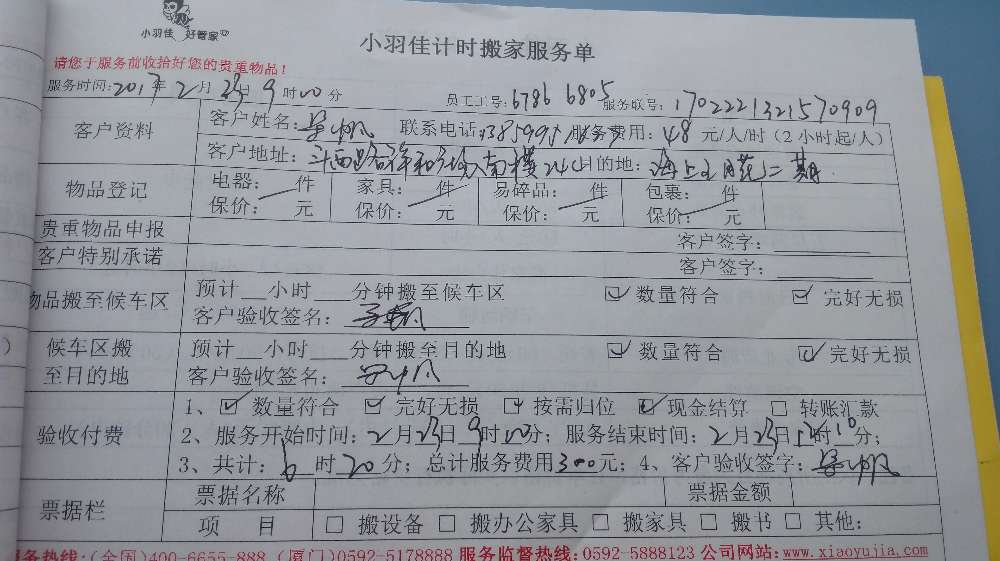 小羽佳 好管家
小羽佳计时搬家服务单
请您于服务前收拾好您的贵重物品!
服务时间:2017年2月23日9时00分 员工工号:6786 6805 服务联号:1702221321570909
客户资料 客户姓名: 联系电话: 服务费用:48元/人/时(2小时起/人)
客户地址: 目的地:海上五月花二期
物品登记 电器: 件 家具: 件 易碎品: 件 包裹: 件
保价: 元 保价: 元 保价: 元 保价: 元
贵重物品申报 客户签字:
客户特别承诺 客户签字:
物品搬至候车区 预计__小时___分钟搬至候车区 数量符合 完好无损
客户验收签名:
候车区搬至目的地 预计__小时___分钟搬至目的地 数量符合 完好无损
客户验收签名:
验收付费 1、数量符合 完好无损 按需归位 现金结算 转账汇款
2、服务开始时间:2月23日9时00分;服务结束时间:2月23日12时10分;
3、共计:6时20分;总计服务费用300元;4、客户验收签字:
票据栏 票据名称 票据金额
项 目 搬设备 搬办公家具 搬家具 搬书 其他:
服务热线:(全国)400-6655-888 (厦门)0592-5178888 服务监督热线:0592-5888123 公司网站:www.xiaoyujia.com